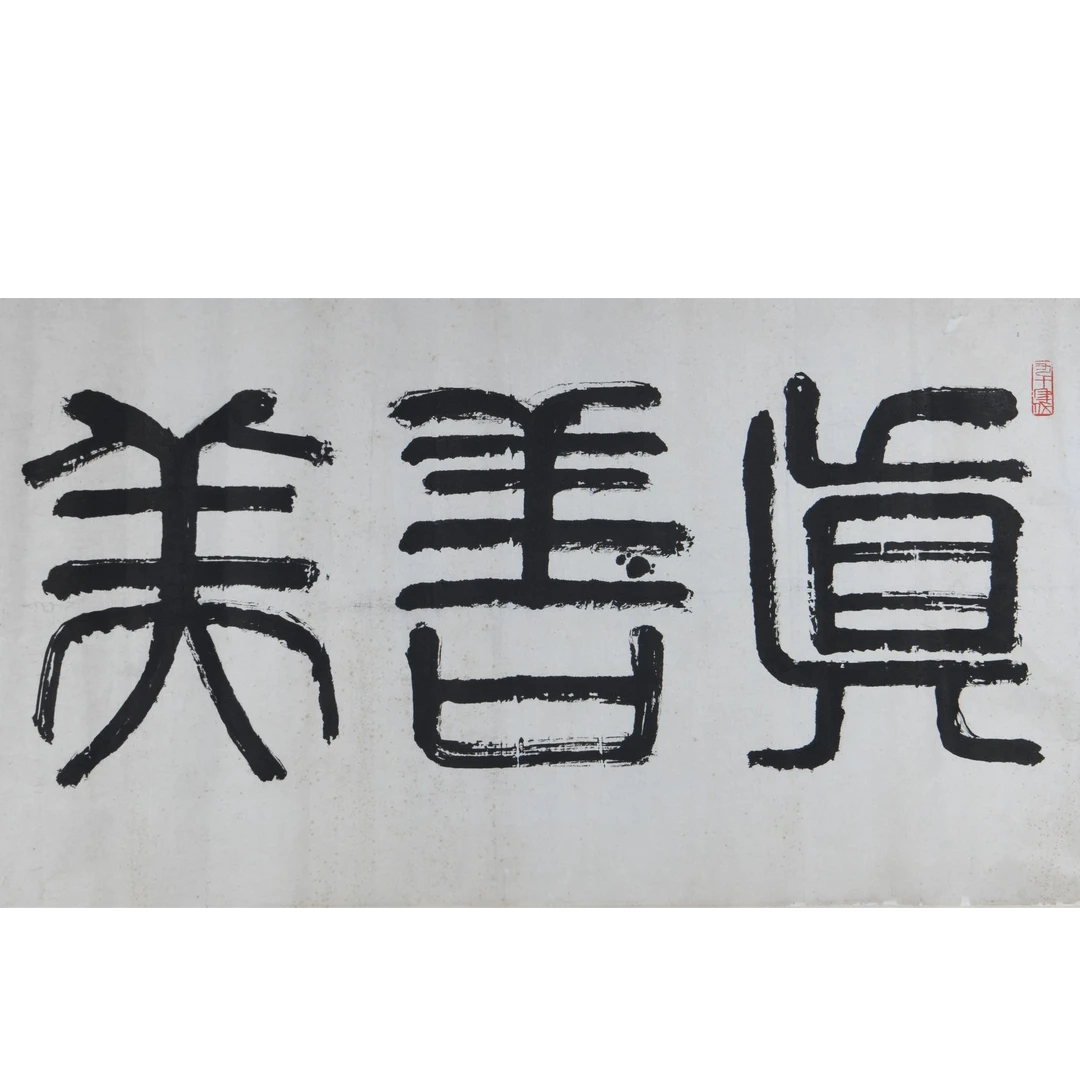 眞善美